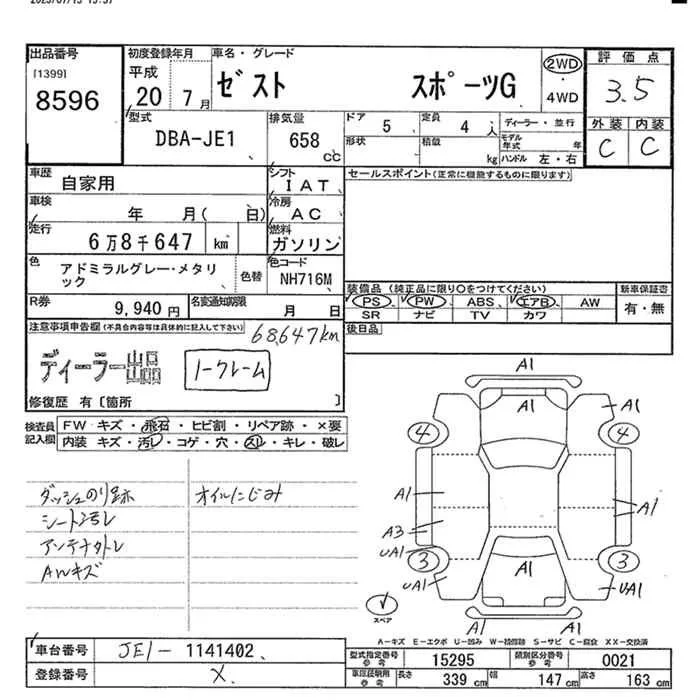 出品番号
[1399]
8596
初度登録年月
平成
20 7月
車名・グレード
ゼスト スポーツG
2WD
・
4WD
評価点
3.5
外装 内装
C C
型式
DBA-JE1
排気量
658
cc
ドア 5
定員 4 人
形状
積載 kg
ディーラー・並行
モデル年式 年
ハンドル 左・右
車歴
自家用
シフト
IAT
車検
年 月( 日)
冷房
AC
走行
6万8千647 km
燃料
ガソリン
色
アドミラルグレー・メタリ
ック
色替
色コード
NH716M
R券
9,940円
名変通知期限
月 日
セールスポイント(正常に機能するものに限ります)
装備品(純正品に限り○をつけてください)
PS PW ABS エアB AW
SR ナビ TV カワ
新車保証書
有・無
後日品
注意事項申告欄(不具合内容等は具体的に記入して下さい)
68,647km
ディーラー出品
ノークレーム
修復歴 有〔箇所 〕
検査員
記入欄
FW キズ・飛石・ヒビ割・リペア跡・×要
内装 キズ・汚レ・コゲ・穴・スレ・キレ・破レ
ダッシュのり跡 オイルにじみ
シート汚レ
アンテナトレ
AWキズ
A1
A1 A1
4 4
A1 A1
A3
UA1
3 3
UA1 A1 UA1
A1 A1
スペア
A－キズ E－エクボ U－凹み W－補修跡 S－サビ C－腐食 XX－交換済
車台番号 JE1- 1141402
登録番号 X
型式指定番号
参考
15295
類別区分番号
参考
0021
車庫証明用
参考
長さ 339 cm 幅 147 cm 高さ 163 cm